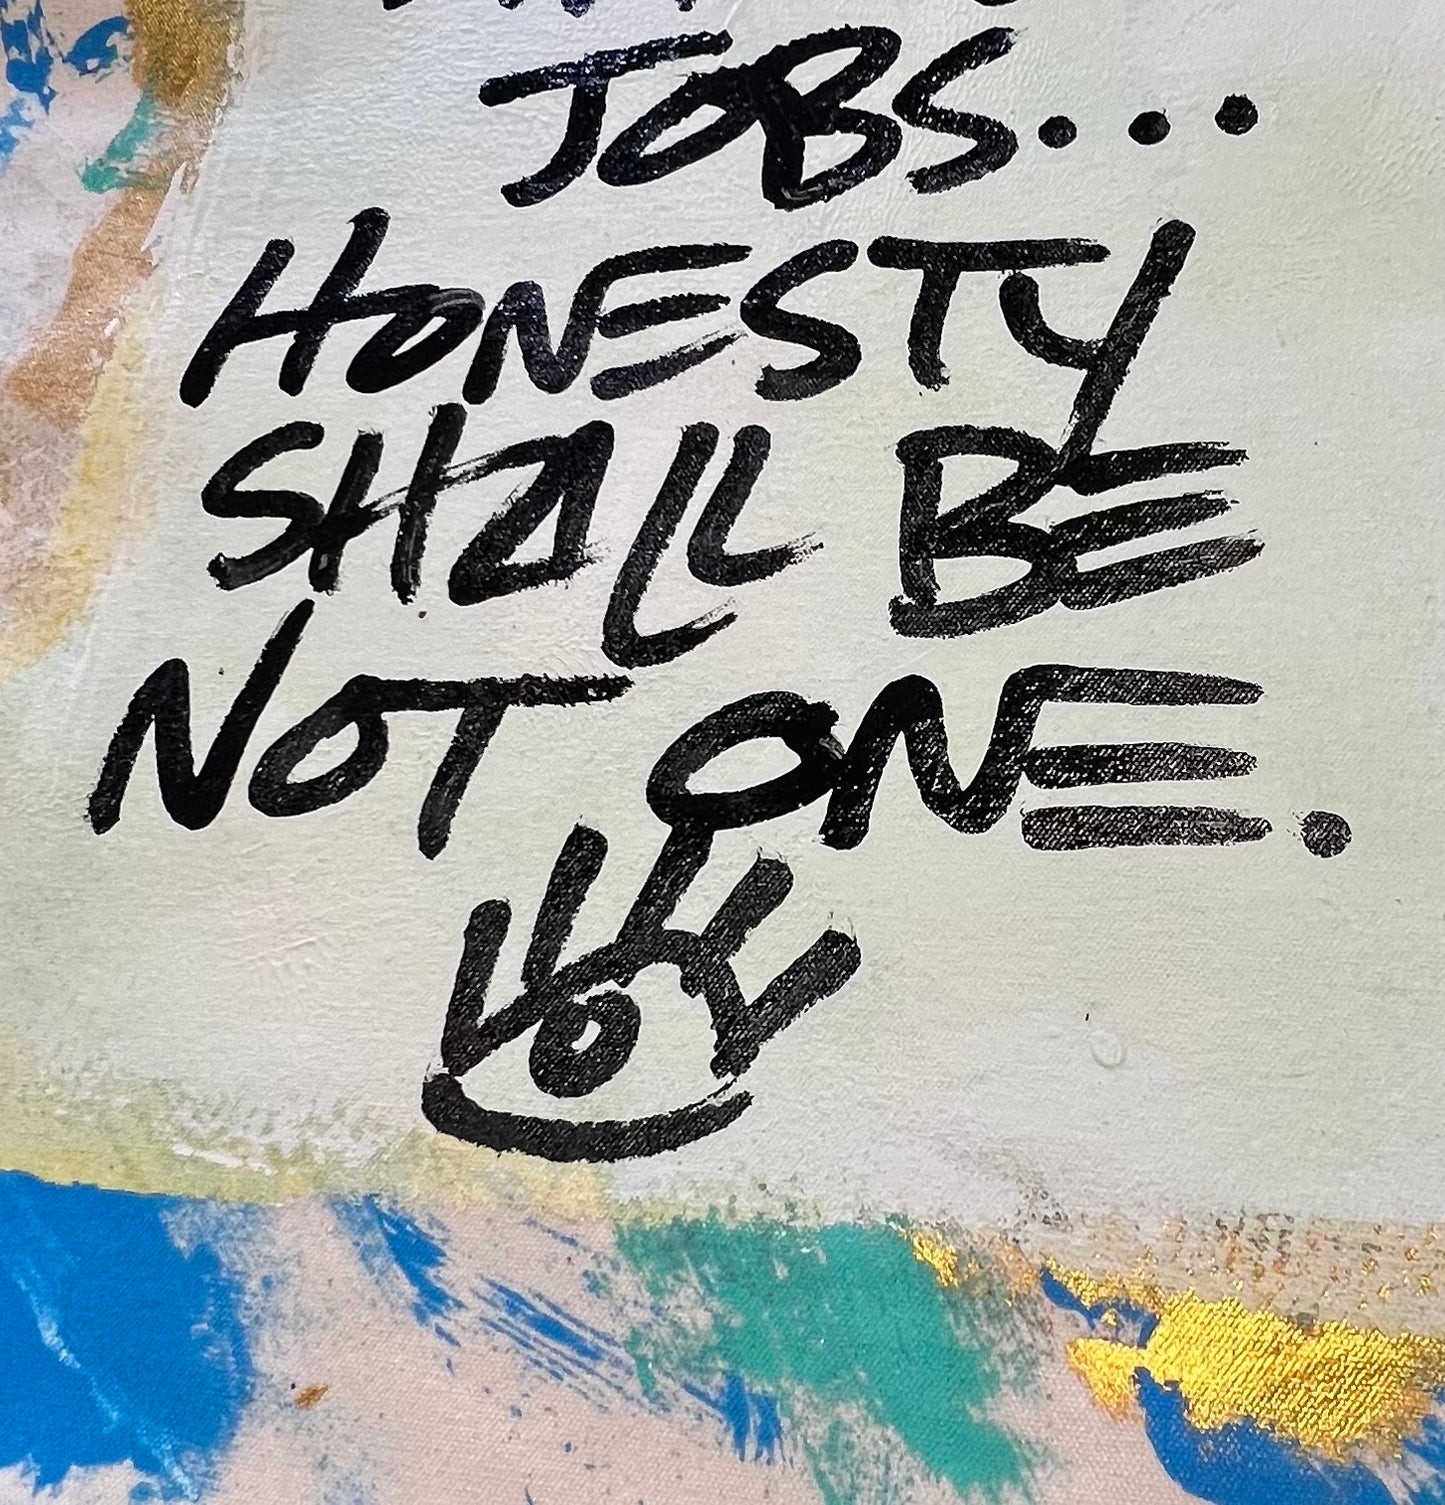 JOBS...
HONESTY
SHALL BE
NOT ONE.